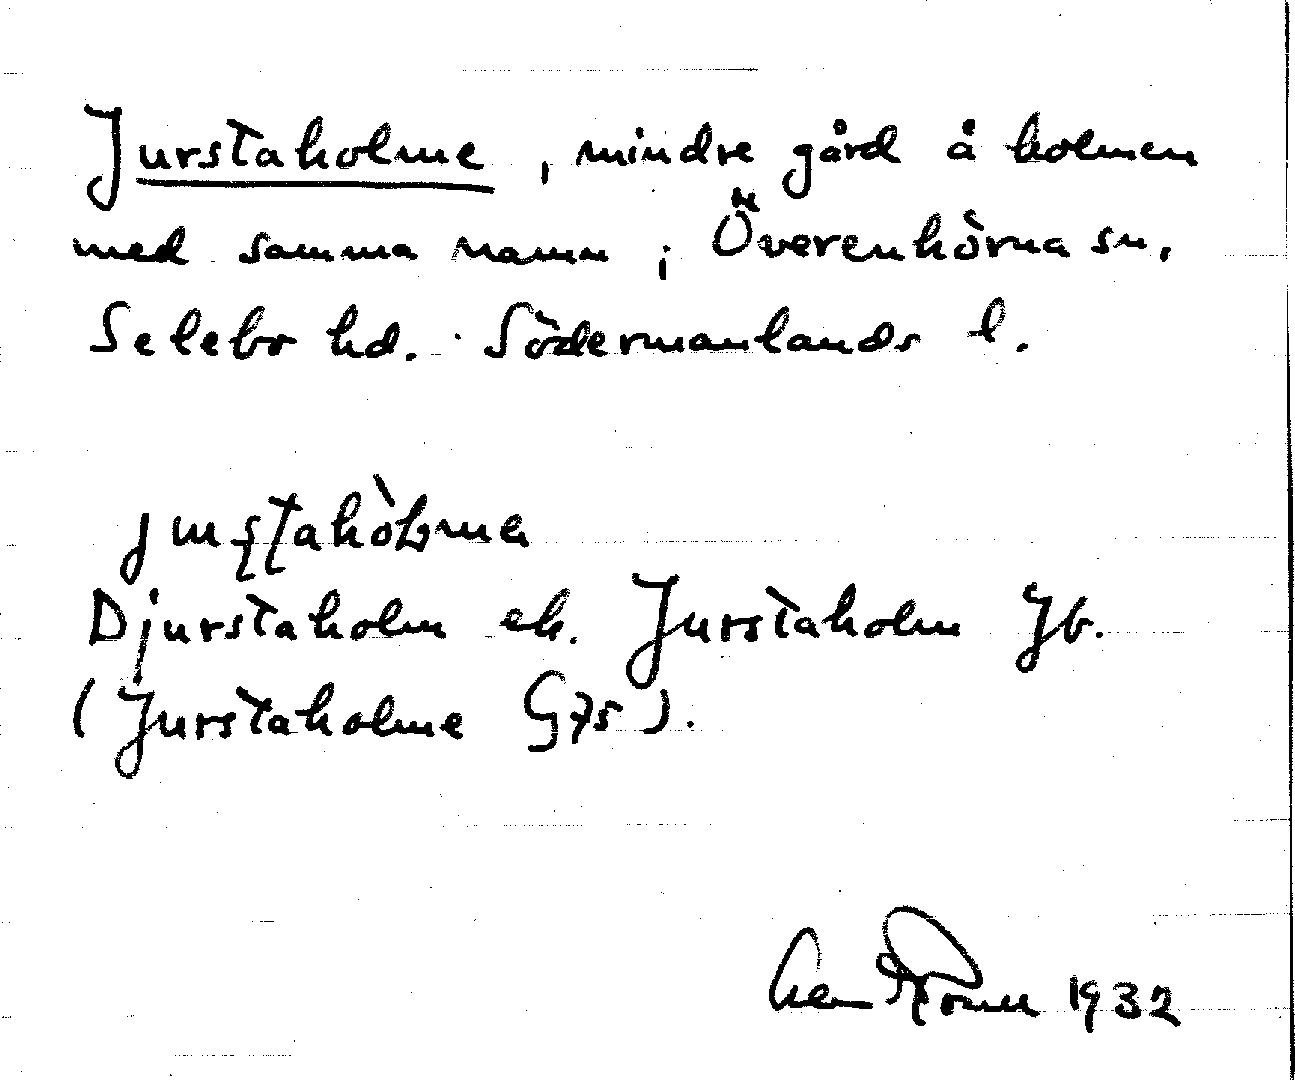 Jurstaholme, mindre gård å holmen
med samma namn i Överenhörna sn.
Selebo hd. Södermanlands l.
Djurstaholm ek. Jurstaholm Jb.
(Jurstaholme G75).
1932